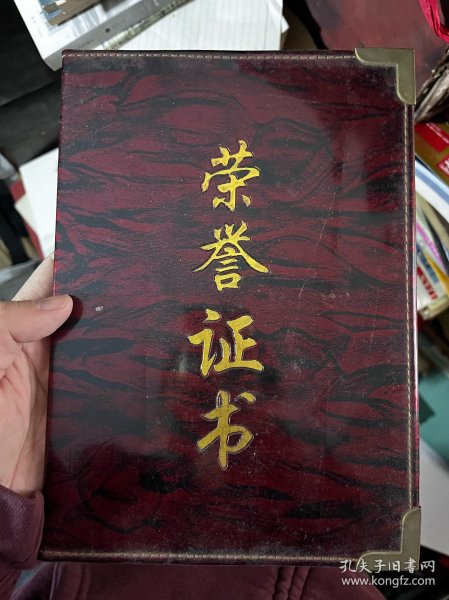 荣誉证书
孔夫子旧书网
www.kongfz.com